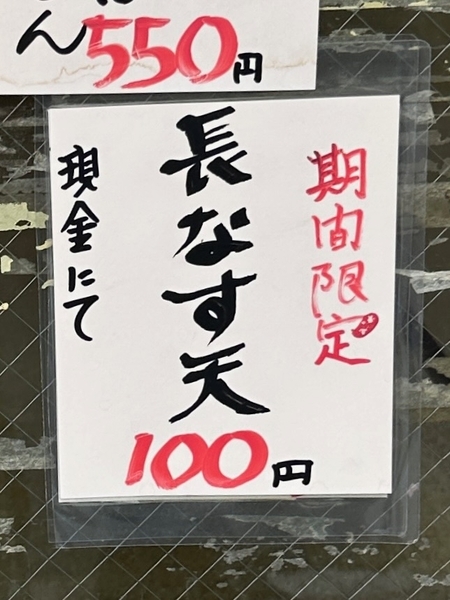 ん
550円
期間限定
長なす天
100円
現金にて